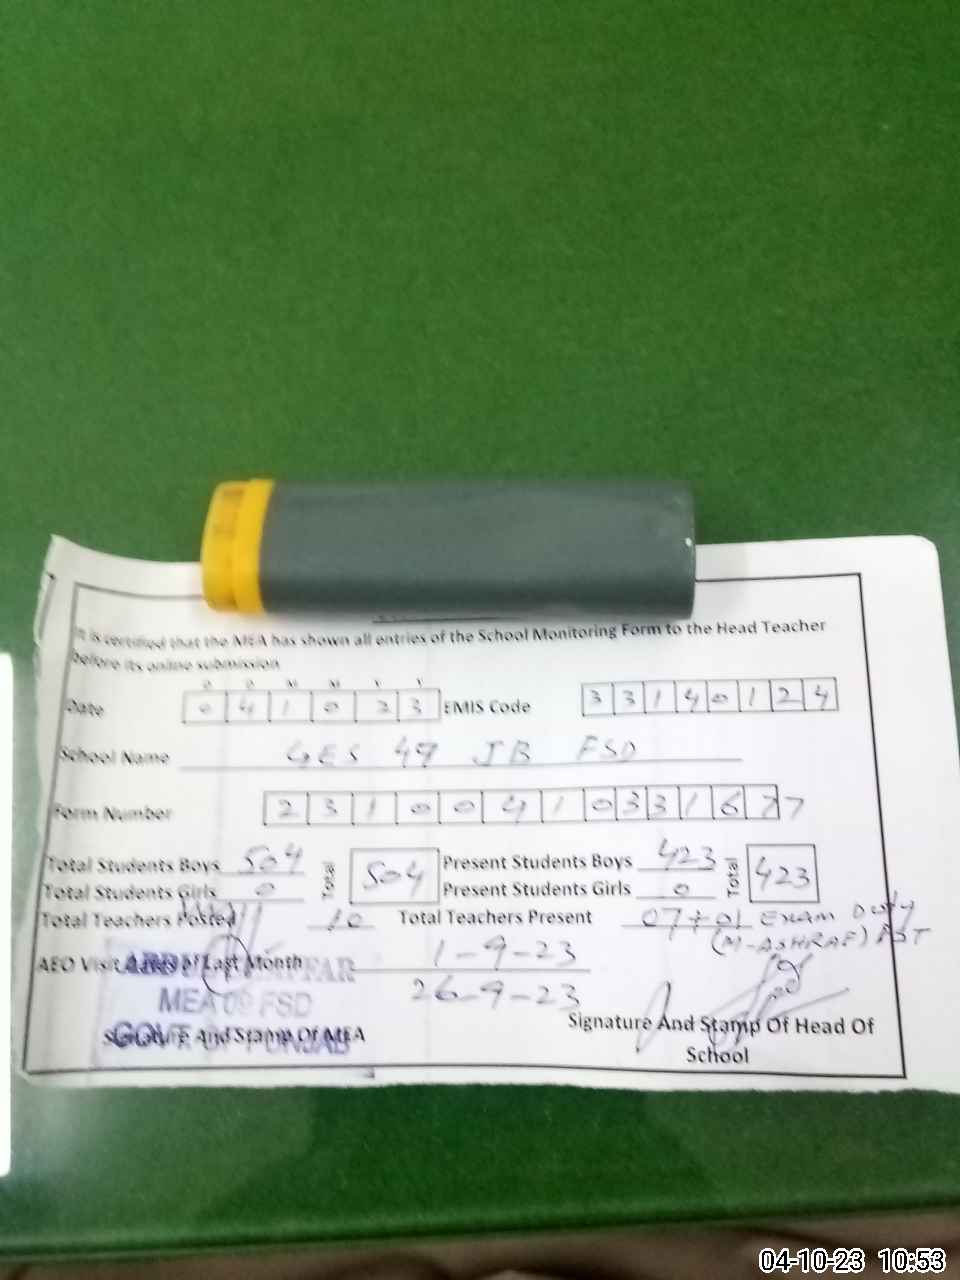 It is certified that the MEA has shown all entries of the School Monitoring Form to the Head Teacher
before its online submission
D D M M Y Y
Date 0 4 1 0 2 3 EMIS Code 3 3 1 4 0 1 2 4
School Name GES 49 JB FSD
Form Number 2 3 1 0 0 4 1 0 3 3 1 6 7 7
Total Students Boys 504 Total 504 Present Students Boys 423 Total 423
Total Students Girls 0 Present Students Girls 0
Total Teachers Posted 10 Total Teachers Present 07+01 EXAM DUTY
(M-ASHRAF) PST
AEO Visit Dates of Last Month 1-9-23
26-9-23
MEA 09 FSD
GOVT OF PUNJAB
Signature And Stamp Of MEA
Signature And Stamp Of Head Of
School
04-10-23 10:53